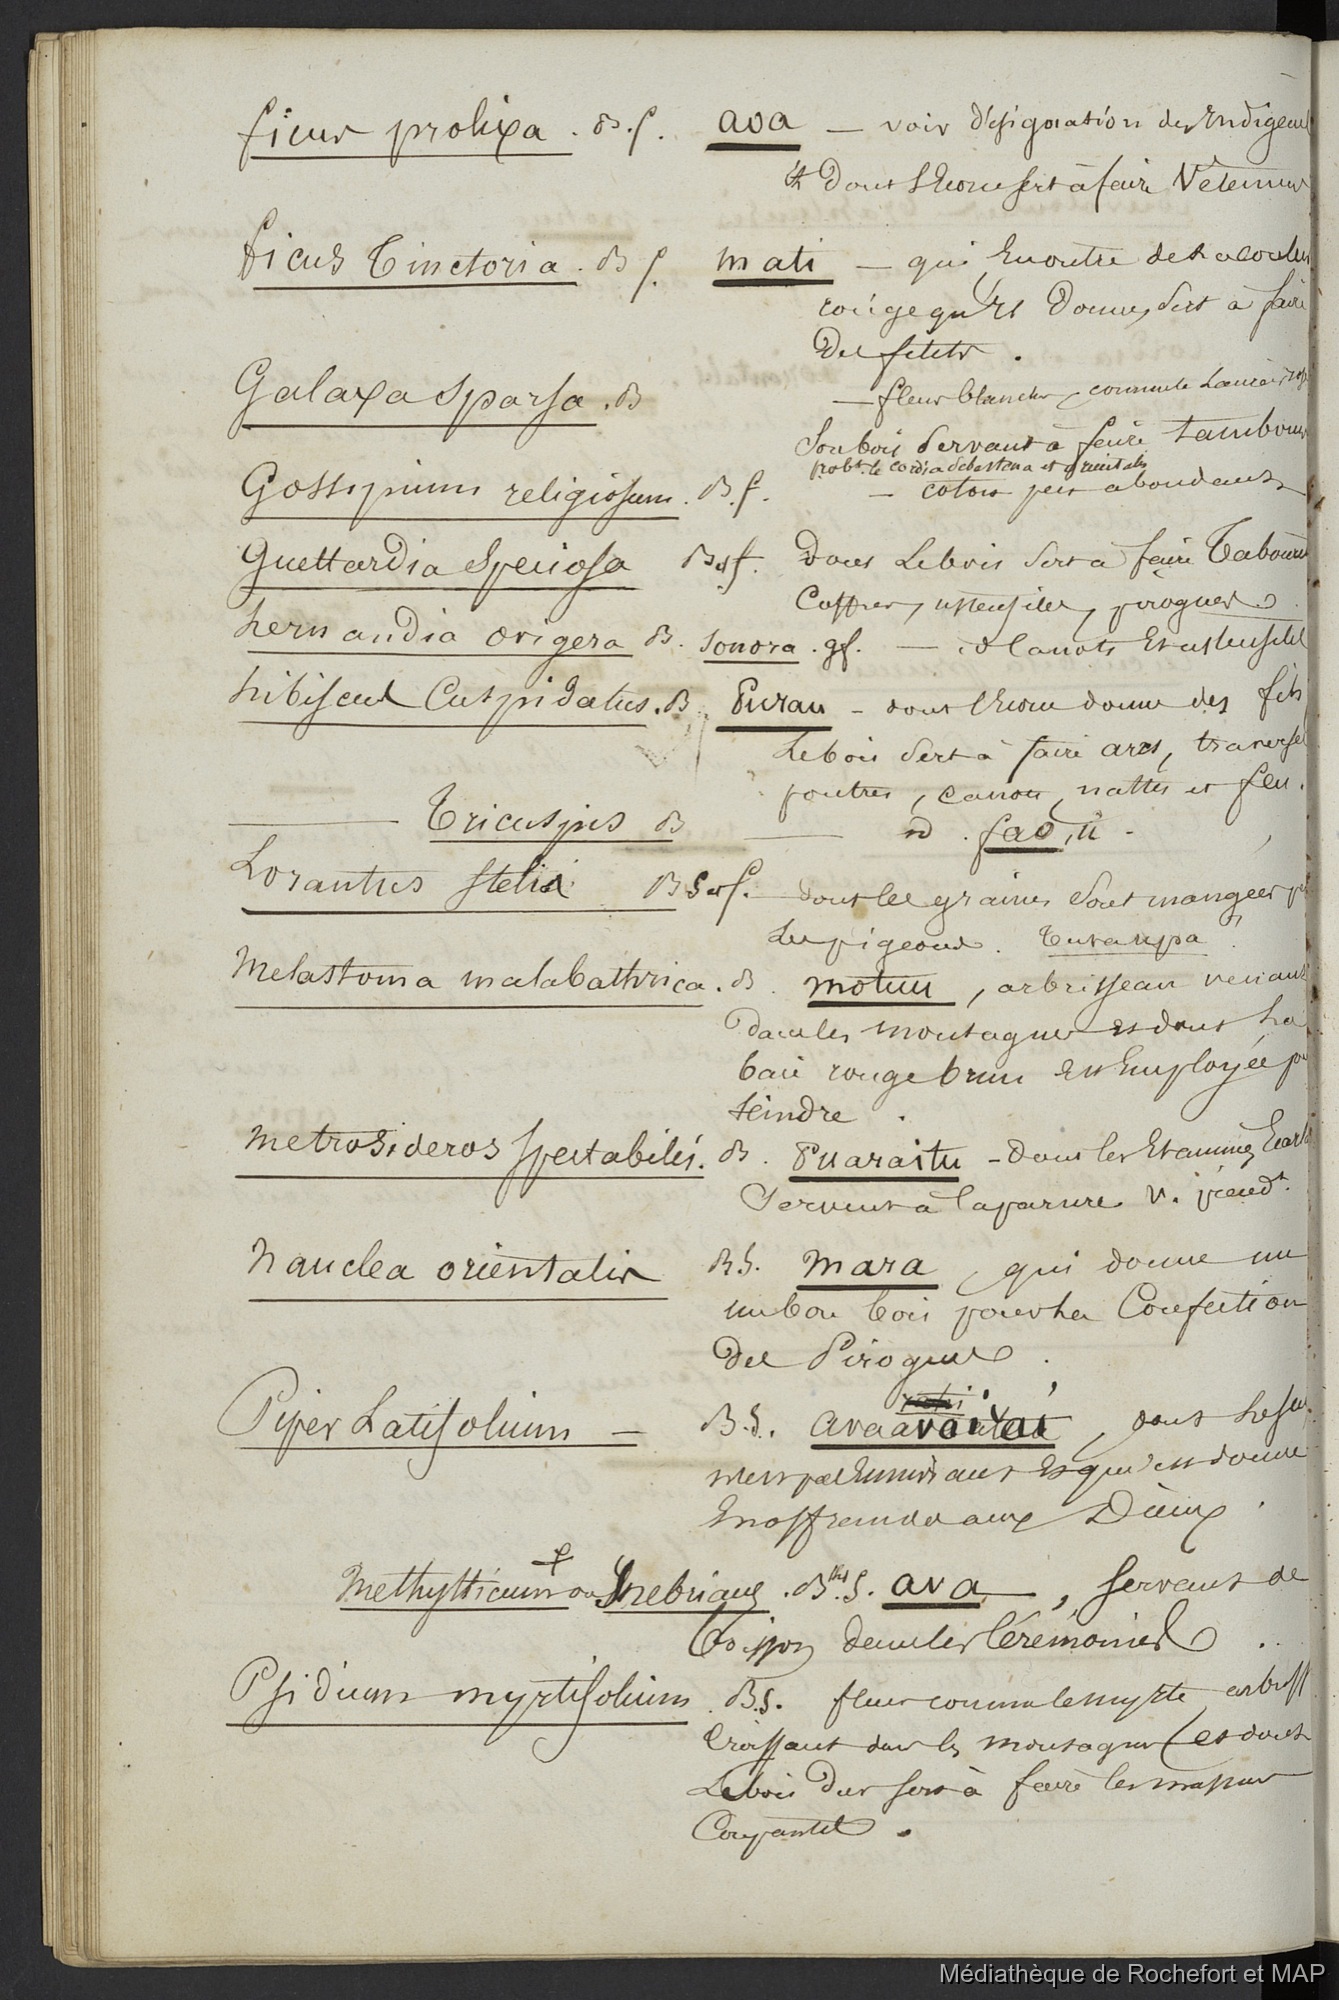 ficus prolixa . B. f. aoa — voir désignation des Indigenes
et dont l'Ecorce sert à faire Vetemens
ficus Tinctoria . B f. mati — qui Enoutre de la couleur
rouge qu'il donne, sert à faire
Des filets .
Galaxa Sparsa . B — fleurs blanches, comme le Laurier rose
Son bois servant à faire tambours
probt. le cordia Sebestena et orientalis
Gossypium religiosum . B. f. — coton peu abondant
Guettardia Speciosa B et f. dont Lebois sert à faire Tabourets
Coffres, ustensiles, pirogues
hernandia ovigera B. Sonora . gf. — id Canots Et ustensiles
hibiscus Cuspidatus . B. Purau — dont l'Ecorce donne des fils
Lebois sert à faire arcs, traverses
poutres, canots, nattes et feu .
——— Tricuspis B ——— id . fao,ü -
Lorantus Stelis B S et f. dont les graines sont mangées par
Les pigeons . Turaripa
Melastoma malabathrica . B . motuu , arbrisseau venant
Dans les montagnes et dont La
baie rouge brun est Employée pr
teindre .
Metrosideros Spectabilis . B . Puaraitu - dont les Etamines Ecarl
Servent à la parure v. pendt.
Nauclea orientalis B S. Mara , qui donne un
un bon bois pour La Confection
Des Pirogues .
Piper Latifolium — B. S. avaavaïraï , dont
Enoffrande aux Dieux .
Methysticum ou Inebrians . B. et S. ava , servant de
boisson dans les Cérémonies . .
Psidium myrtifolium . B. S. fleur comme le myrte, arbuss
Croissant dans les montagnes (et dont
Lebois Dur sert à faire les massues
Coupantes .
Médiathèque de Rochefort et MAP